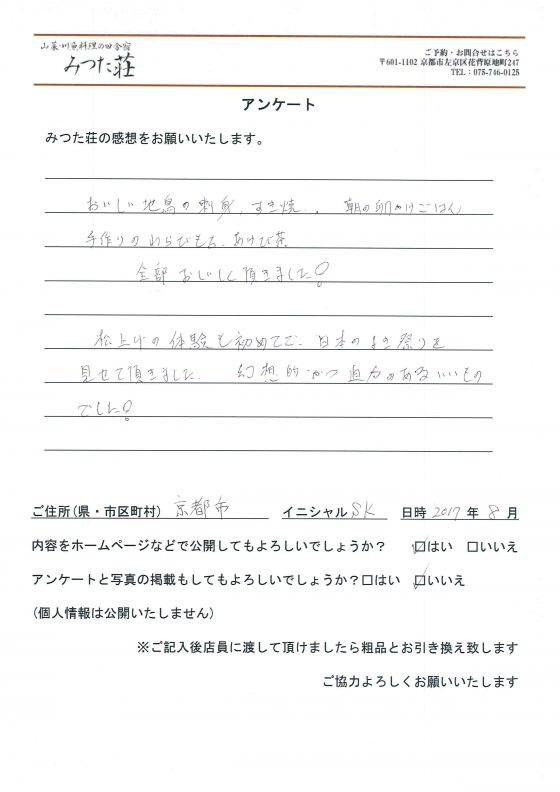 山菜・川魚料理の田舎宿
みつた荘
ご予約・お問合せはこちら
〒601-1102 京都市左京区花背原地町247
TEL：075-746-0125
アンケート
みつた荘の感想をお願いいたします。
おいしい地鳥の刺身、すき焼、朝の卵かけごはん
手作りのわらびもち、あけび茶
全部おいしく頂きました!
松上げの体験も初めてで、日本のよき祭りを
見せて頂きました。幻想的かつ迫力のあるいいもの
でした!
ご住所(県・市区町村) 京都市 イニシャル SK 日時 2017 年 8 月
内容をホームページなどで公開してもよろしいでしょうか？ ☑はい □いいえ
アンケートと写真の掲載もしてもよろしいでしょうか？□はい ☑いいえ
(個人情報は公開いたしません)
※ご記入後店員に渡して頂けましたら粗品とお引き換え致します
ご協力よろしくお願いいたします